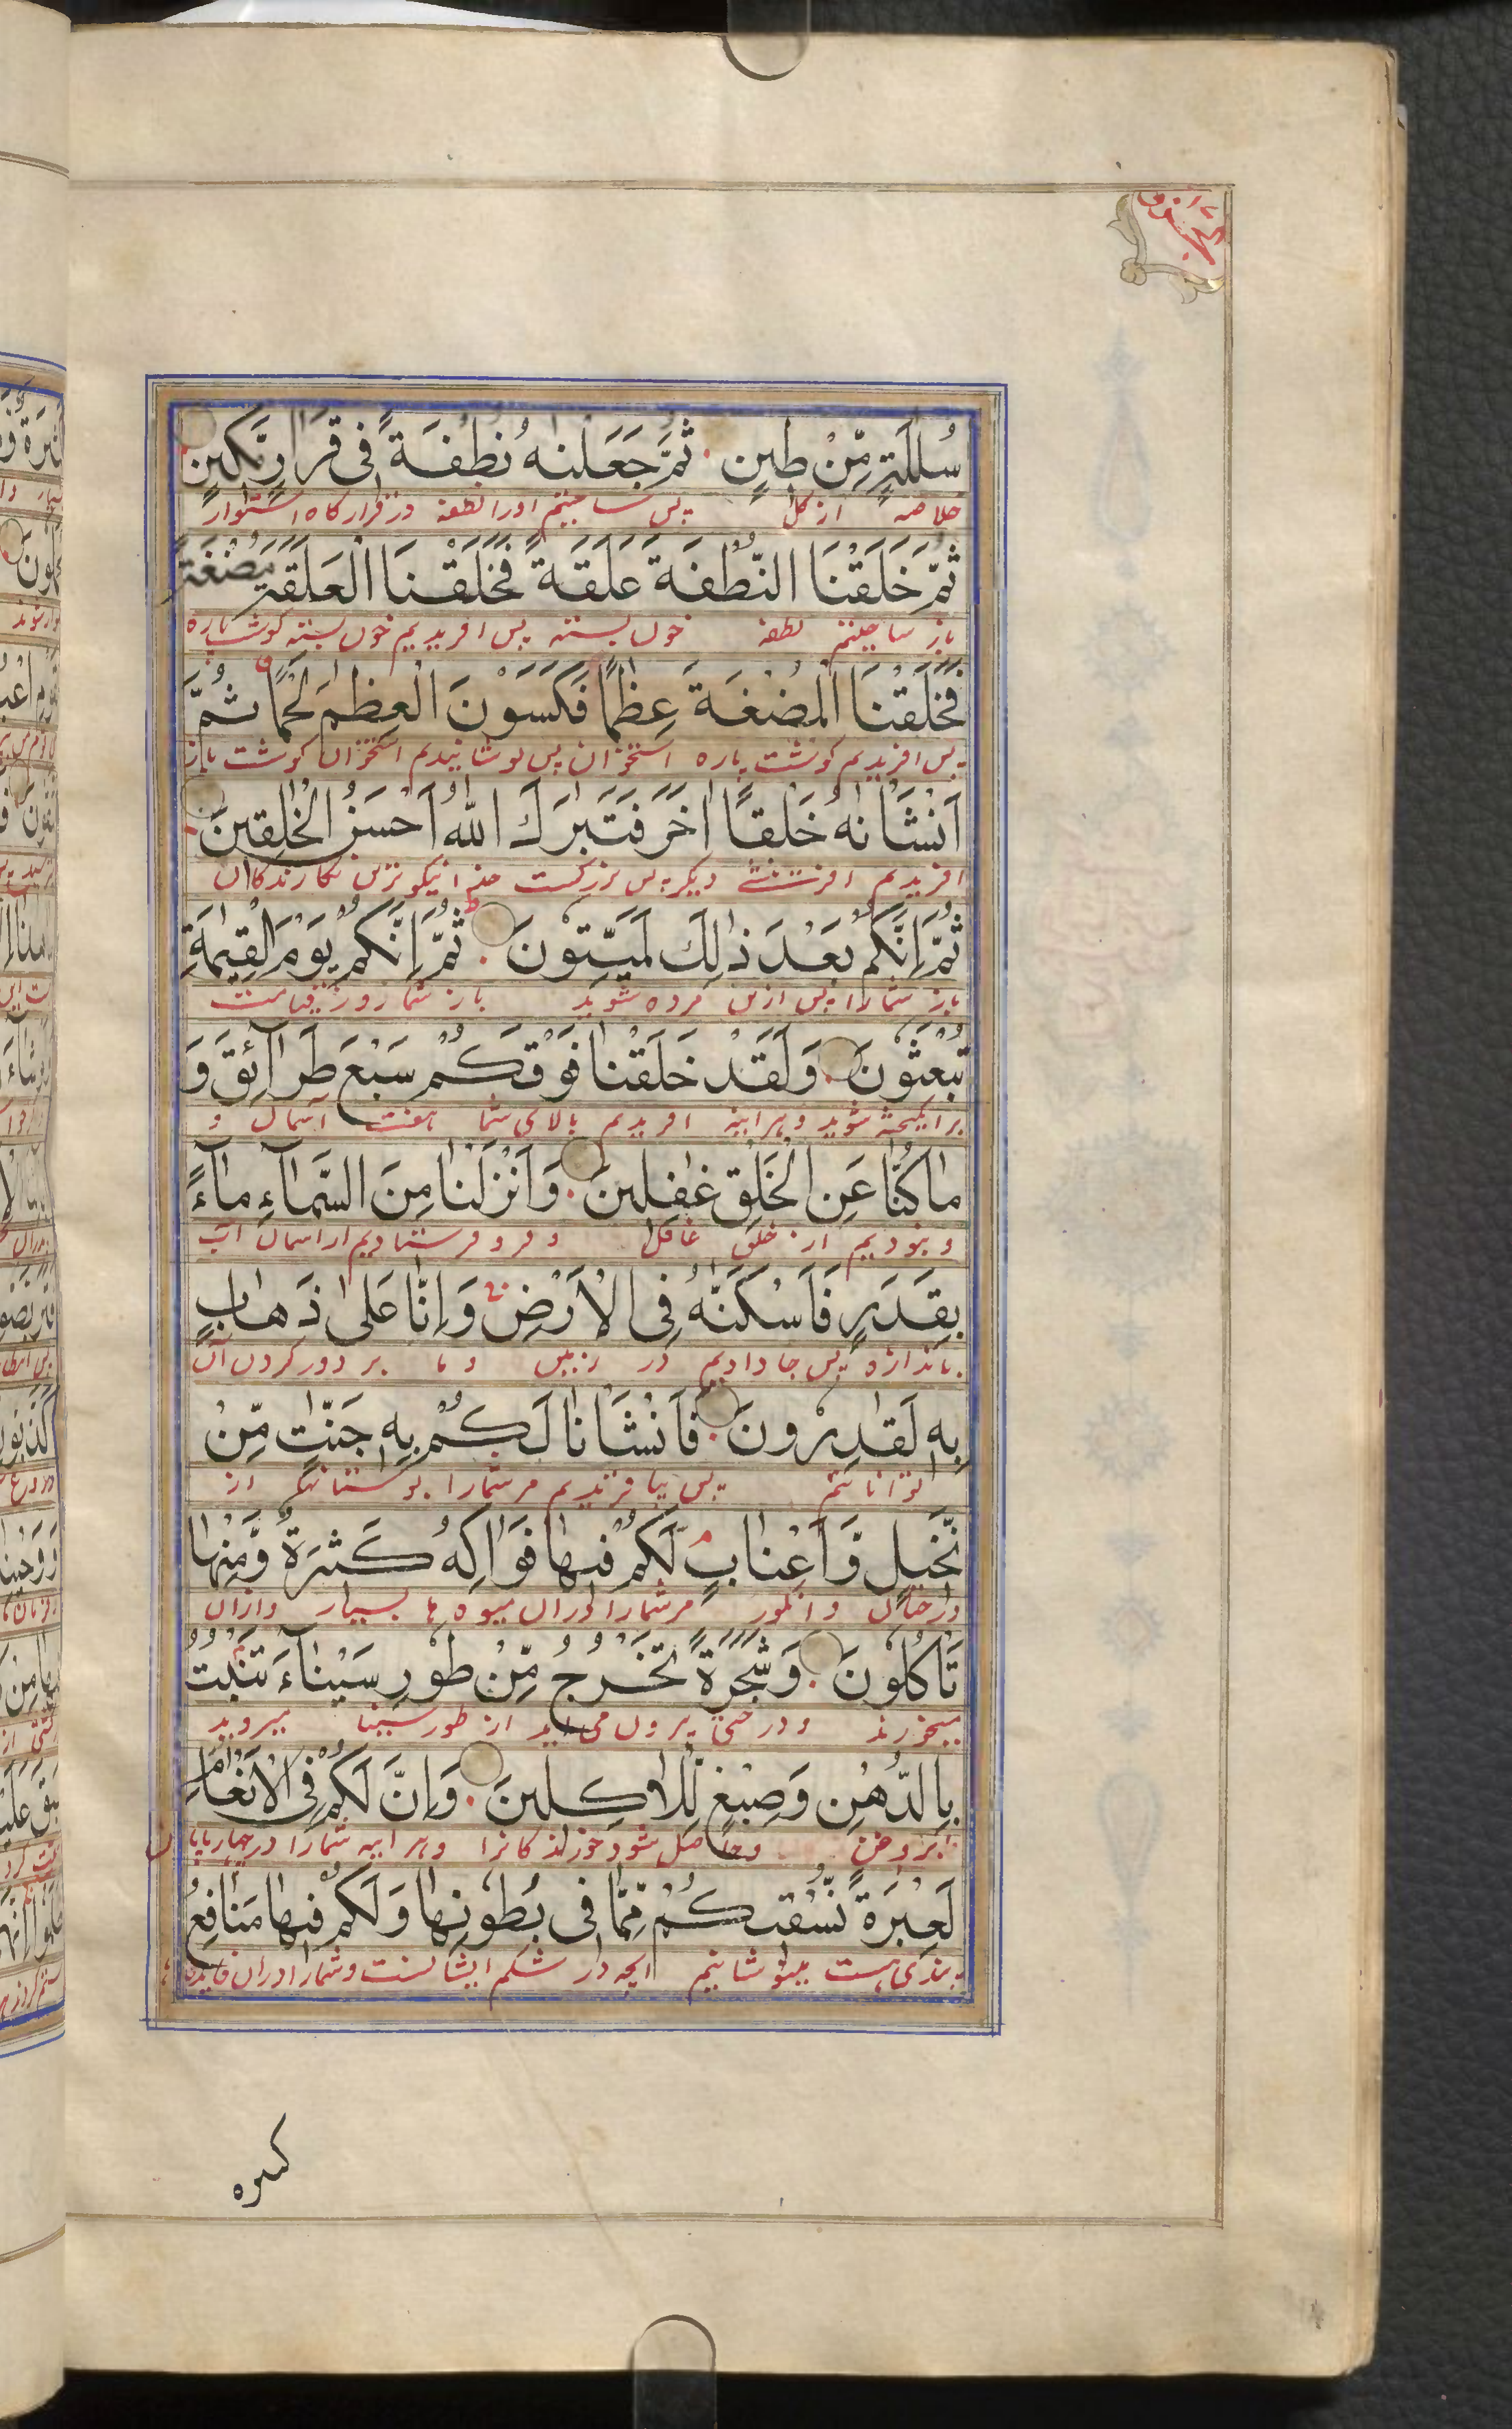 سُلٰلَةٍ مِّنْ طِينٍ ثُمَّ جَعَلْنٰهُ نُطْفَةً فِي قَرَارٍ مَّكِينٍ
خلاصه از گل پس ساختیم اورا نطفه در قرارگاه استوار
ثُمَّ خَلَقْنَا النُّطْفَةَ عَلَقَةً فَخَلَقْنَا الْعَلَقَةَ مُضْغَةً
باز ساختیم نطفه خون بسته پس افریدیم خون بسته گوشت پاره
فَخَلَقْنَا الْمُضْغَةَ عِظٰمًا فَكَسَوْنَ الْعِظٰمَ لَحْمًا ثُمَّ
پس افریدیم گوشت پاره استخوان پس پوشانیدیم استخوان گوشت باز
اَنْشَاْنٰهُ خَلْقًا اٰخَرَ فَتَبٰرَكَ اللّٰهُ اَحْسَنُ الْخٰلِقِينَ
افریدیم افرینشی دیگر پس بزرگست خدا نیکوترین نگارندگان
ثُمَّ اِنَّكُمْ بَعْدَ ذٰلِكَ لَمَيِّتُونَ ثُمَّ اِنَّكُمْ يَوْمَ الْقِيٰمَةِ
باز شمارا پس ازین مرده شوید باز شما روز قیامت
تُبْعَثُونَ وَلَقَدْ خَلَقْنَا فَوْقَكُمْ سَبْعَ طَرَآئِقَ وَ
برانگیخته شوید و هراینه افریدیم بالای شما هفت اسمان و
مَا كُنَّا عَنِ الْخَلْقِ غٰفِلِينَ وَاَنْزَلْنَا مِنَ السَّمَآءِ مَآءً
و نبودیم از خلق غافل و فرو فرستادیم از اسمان آب
بِقَدَرٍ فَاَسْكَنّٰهُ فِي الْاَرْضِ وَاِنَّا عَلٰى ذَهَابٍ
باندازه پس جا دادیم در زمین و ما بر دور کردن آن
بِهِ لَقٰدِرُونَ فَاَنْشَاْنَا لَكُمْ بِهِ جَنّٰتٍ مِّنْ
تواناییم پس بیافریدیم مر شمارا بوستانها از
نَّخِيلٍ وَّاَعْنَابٍ لَّكُمْ فِيهَا فَوَاكِهُ كَثِيرَةٌ وَّمِنْهَا
درختان و انگور مر شمارا دران میوه ها بسیار و ازان
تَاْكُلُونَ وَشَجَرَةً تَخْرُجُ مِنْ طُورِ سَيْنَآءَ تَنْبُتُ
میخورند و درختی بیرون می اید از طور سینا میروید
بِالدُّهْنِ وَصِبْغٍ لِّلْاٰكِلِينَ وَاِنَّ لَكُمْ فِي الْاَنْعَامِ
بروغن و حاصل شود خورندگانرا و هراینه شمارا در چهارپایان
لَعِبْرَةً نُّسْقِيكُمْ مِّمَّا فِي بُطُونِهَا وَلَكُمْ فِيهَا مَنَافِعُ
پندی هست مینوشانیم انچه در شکم ایشانست و شمارا دران فایده
کثیره